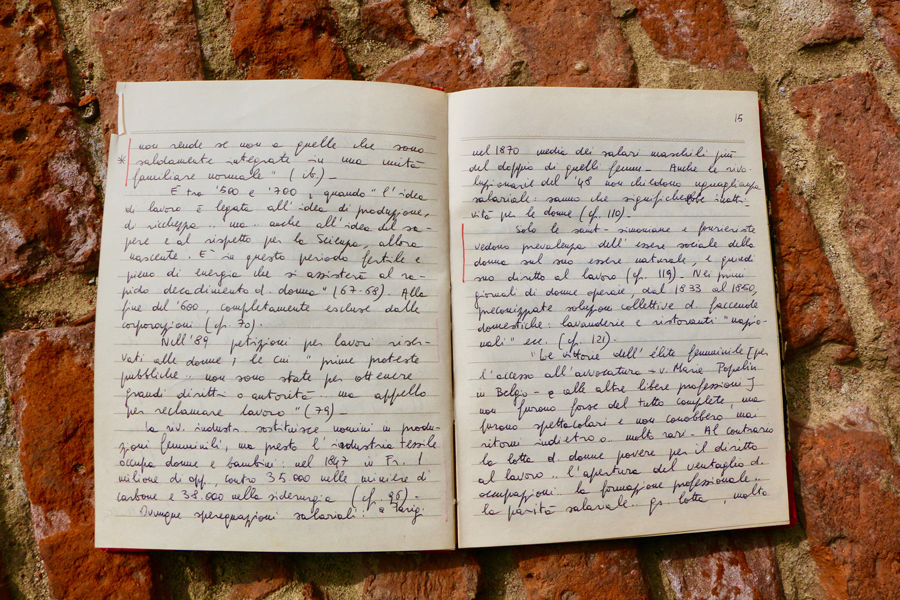 non rende se non a quelle che sono
* saldamente integrate in una unità
familiare normale" (ib.) -
E tra '500 e '700, quando "l'idea
di lavoro è legata all'idea di produzione,
di ricchezza .. ma .. anche all'idea del sa-
pere e al rispetto per la Scienza, allora
nascente. E' in questo periodo fertile e
pieno di energia che si assisterà al ra-
pido decadimento d. donna" (67-68). Alla
fine del '600, completamente escluse dalle
corporazioni (cf. 70).
Nell'89 petizioni per lavori riser-
vati alle donne; le cui "prime proteste
pubbliche .. non sono state per ottenere
grandi diritti o autorità .. ma appello
per reclamare lavoro" (79) -
La riv. industr. sostituisce uomini in produ-
zioni femminili, ma presto l'industria tessile
occupa donne e bambini: nel 1847 in Fr. 1
milione di op., contro 35000 nelle miniere di
carbone e 38.000 nella siderurgia (cf. 96). -
Ovunque sperequazioni salariali: a Parigi
15
nel 1870 media dei salari maschili più
del doppio di quelli femm. - Anche le rivo-
luzionarie del '48 non chiedono uguaglianza
salariale: sanno che significherebbe inatti-
vità per le donne (cf. 110). -
Solo le saint-simoniane e fourieriste
vedono prevalenza dell'essere sociale della
donna sul suo essere naturale, e quindi
suo diritto al lavoro (cf. 119). Nei primi
giornali di donne operaie, dal 1833 al 1850,
preconizzate soluzioni collettive d. faccende
domestiche: lavanderie e ristoranti "nazio-
nali" ecc. (cf. 121).
"Le vittorie dell'élite femminile [per
l'accesso all'avvocatura - v. Marie Popelin
in Belgio - e alle altre libere professioni]
non furono forse del tutto complete, ma
furono spettacolari e non conobbero mai
ritorni indietro o molto rari. Al contrario
la lotta d. donne povere per il diritto
al lavoro .. l'apertura del ventaglio d.
occupazioni .. la formazione professionale ..
la parità salariale .. lotta, molto